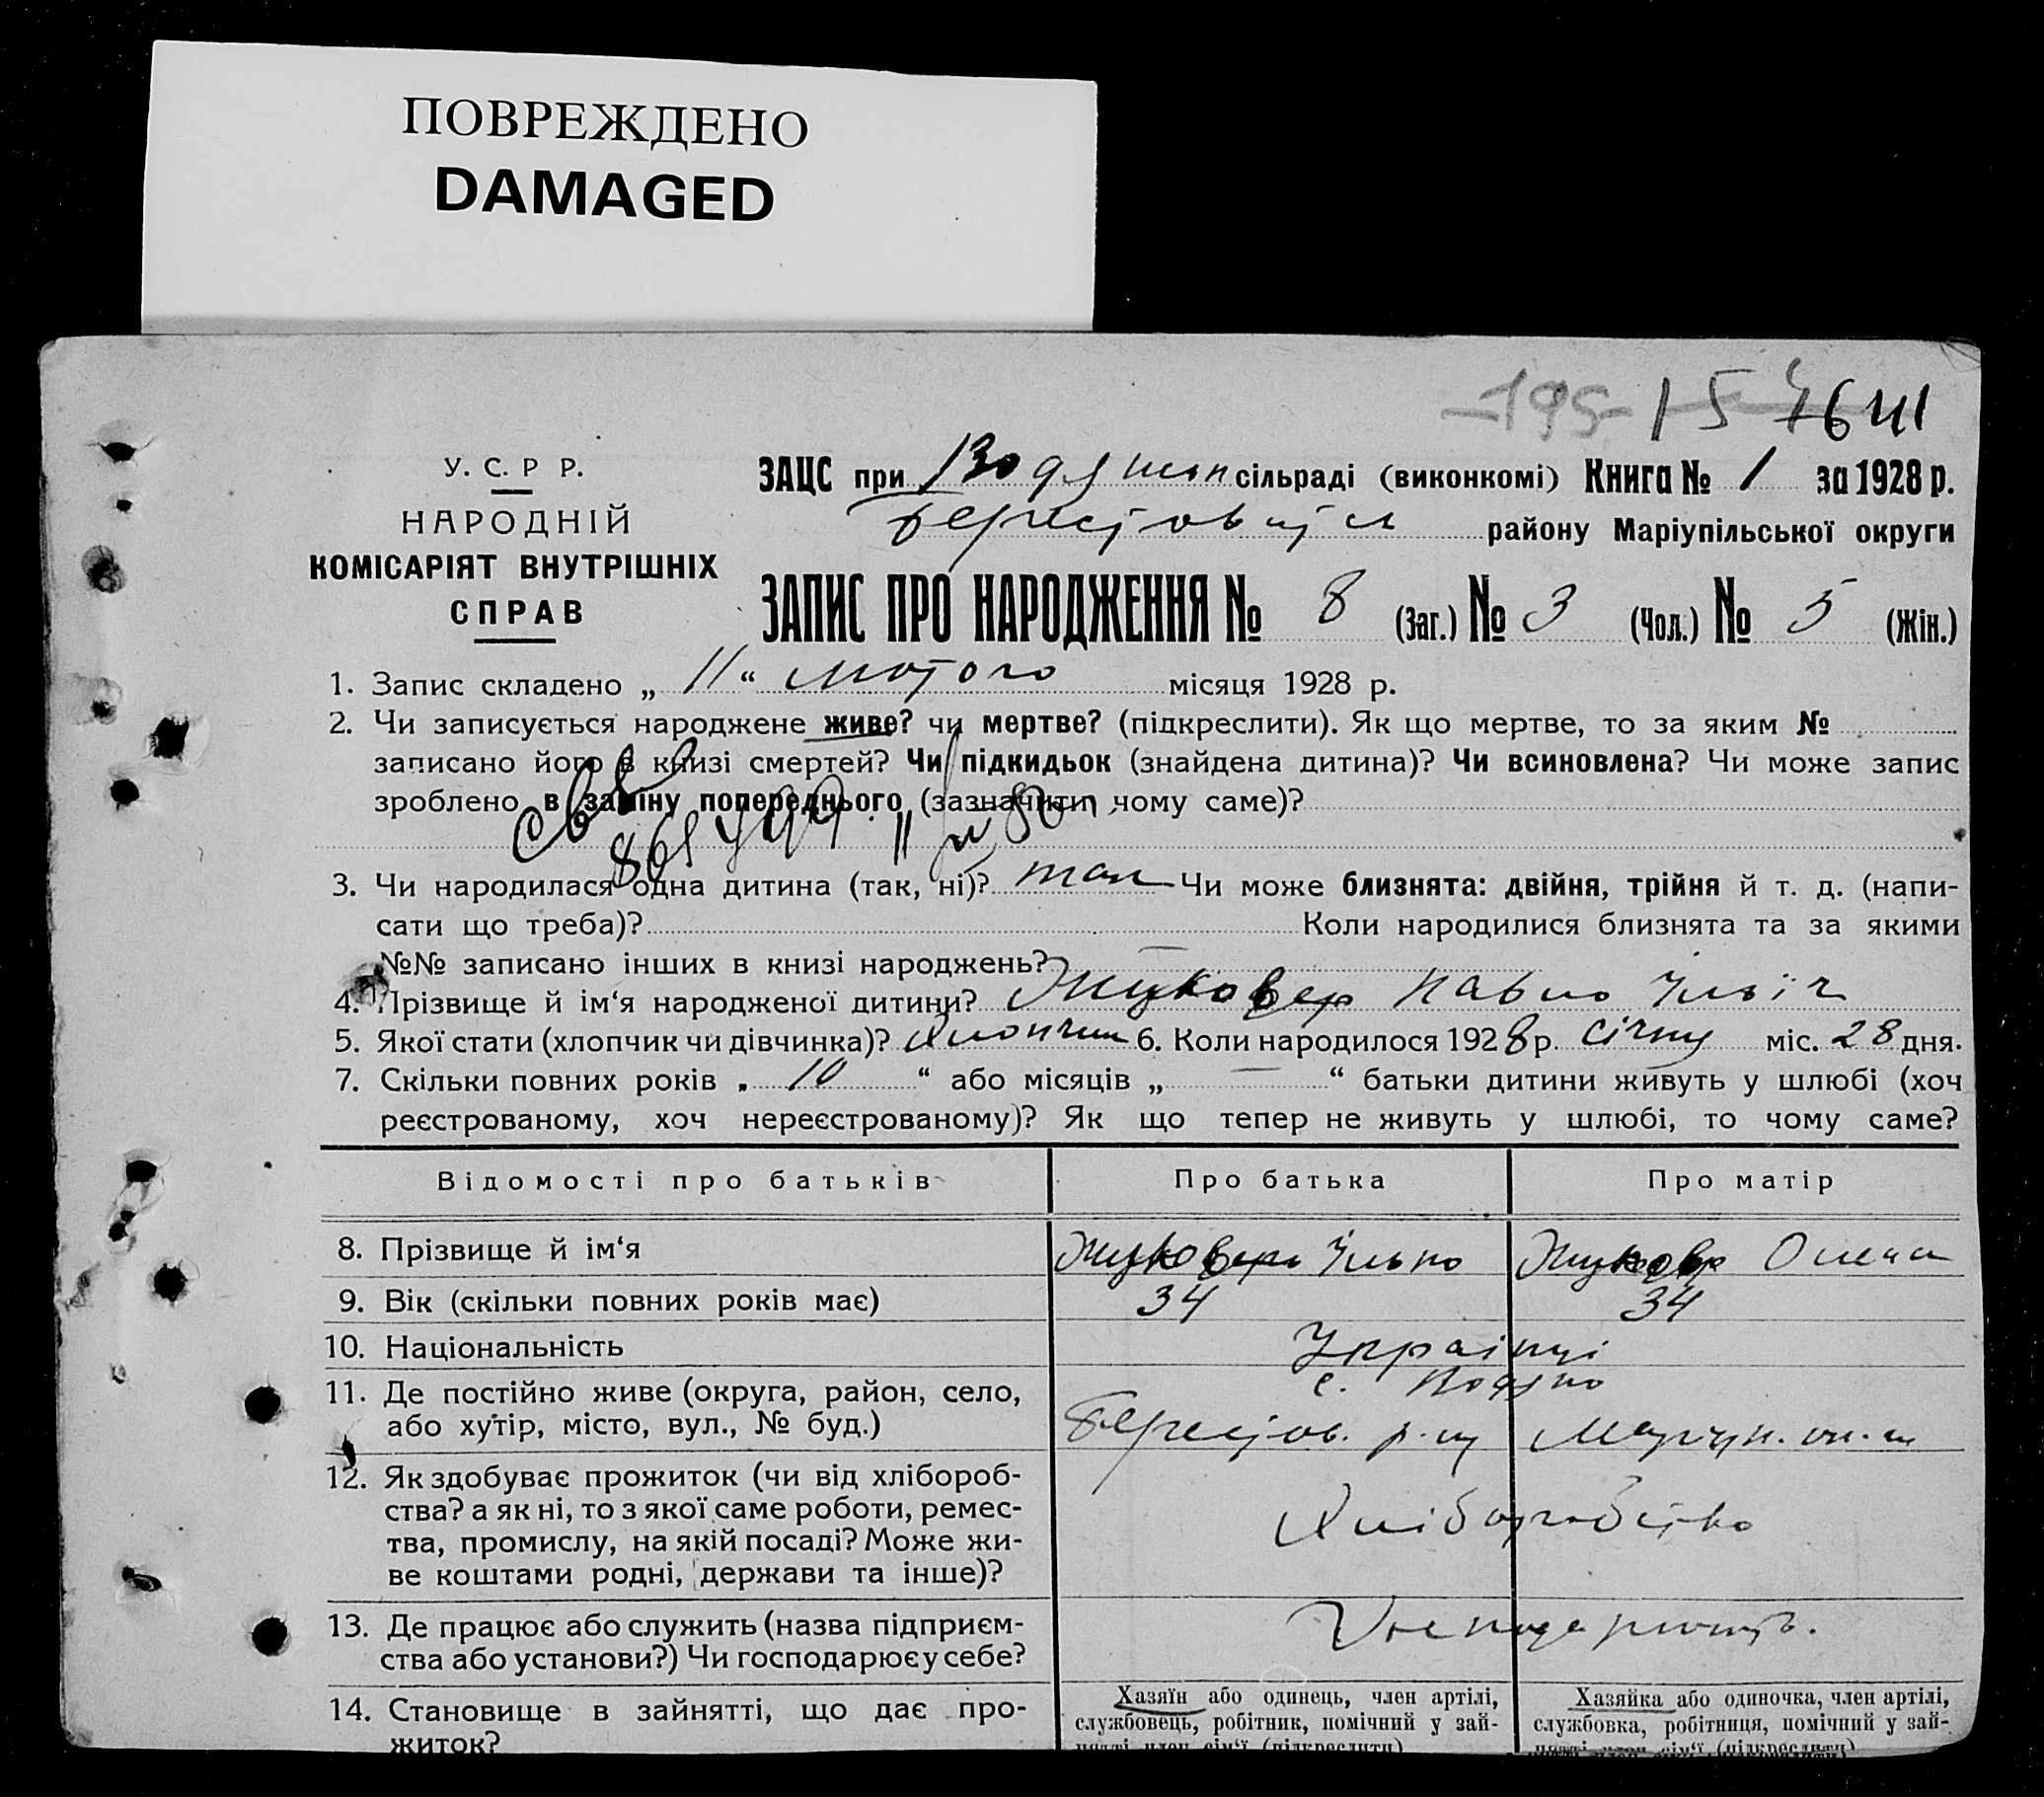 ПОВРЕЖДЕНО
DAMAGED
195 15 641
У. С. Р Р.
НАРОДНІЙ
КОМІСАРІЯТ ВНУТРІШНІХ
СПРАВ
ЗАЦС при Водян сільраді (виконкомі) Книга № 1 за 1928 р.
району Маріупільської округи
ЗАПИС ПРО НАРОДЖЕННЯ № 8 (Заг.) № 3 (Чол.) № 5 (Жін.)
1. Запис складено „ 11 “ лютого місяця 1928 р.
2. Чи записується народжене живе? чи мертве? (підкреслити). Як що мертве, то за яким №
записано його в книзі смертей? Чи підкидьок (знайдена дитина)? Чи всиновлена? Чи може запис
зроблено в заміну попереднього (зазначити чому саме)?
3. Чи народилася одна дитина (так, ні)? так Чи може близнята: двійня, трійня й т. д. (напи-
сати що треба)? Коли народилися близнята та за якими
№№ записано інших в книзі народжень? —
4. Прізвище й ім‘я народженої дитини? Павло Ільїч
5. Якої стати (хлопчик чи дівчинка)? Хлопчик 6. Коли народилося 1928 р. січну міс. 28 дня.
7. Скільки повних років „ 10 “ або місяців „ — “ батьки дитини живуть у шлюбі (хоч
реєстрованому, хоч нереєстрованому)? Як що тепер не живуть у шлюбі, то чому саме?
Відомості про батьків Про батька Про матір
8. Прізвище й ім‘я Ілько Олена
9. Вік (скільки повних років має) 34 34
10. Національність Українці
11. Де постійно живе (округа, район, село, с. Водяно
або хутір, місто, вул., № буд.) Берестов. р-ну Маріуп. ок-и
12. Як здобуває прожиток (чи від хлібороб-
ства? а як ні, то з якої саме роботи, ремес- Хліборобство
тва, промислу, на якій посаді? Може жи-
ве коштами родні, держави та інше)?
13. Де працює або служить (назва підприєм-
ства або установи?) Чи господарює у себе?
14. Становище в зайнятті, що дає про- Хазяїн або одинець, член артілі, Хазяйка або одиночка, член артілі,
житок? службовець, робітник, помічний у зай- службовка, робітниця, помічний у зай-
нятті член сім‘ї (підкреслити) нятті член сім‘ї (підкреслити)